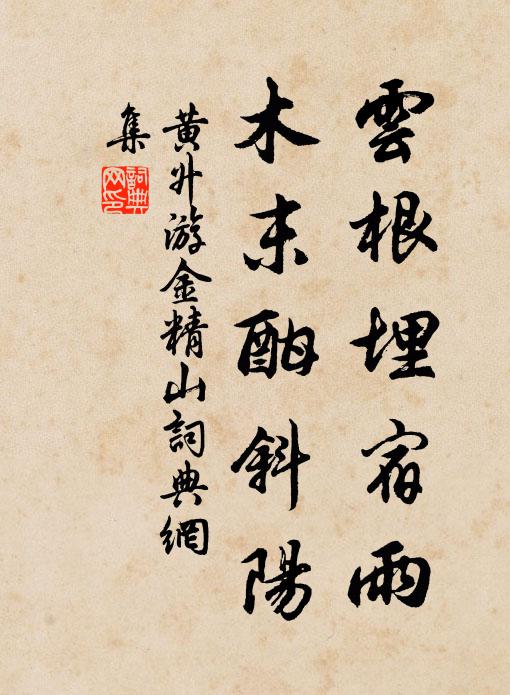 雲根埋宿雨
木末酣斜陽
黄升游金精山詞典網
集
詞典
网印